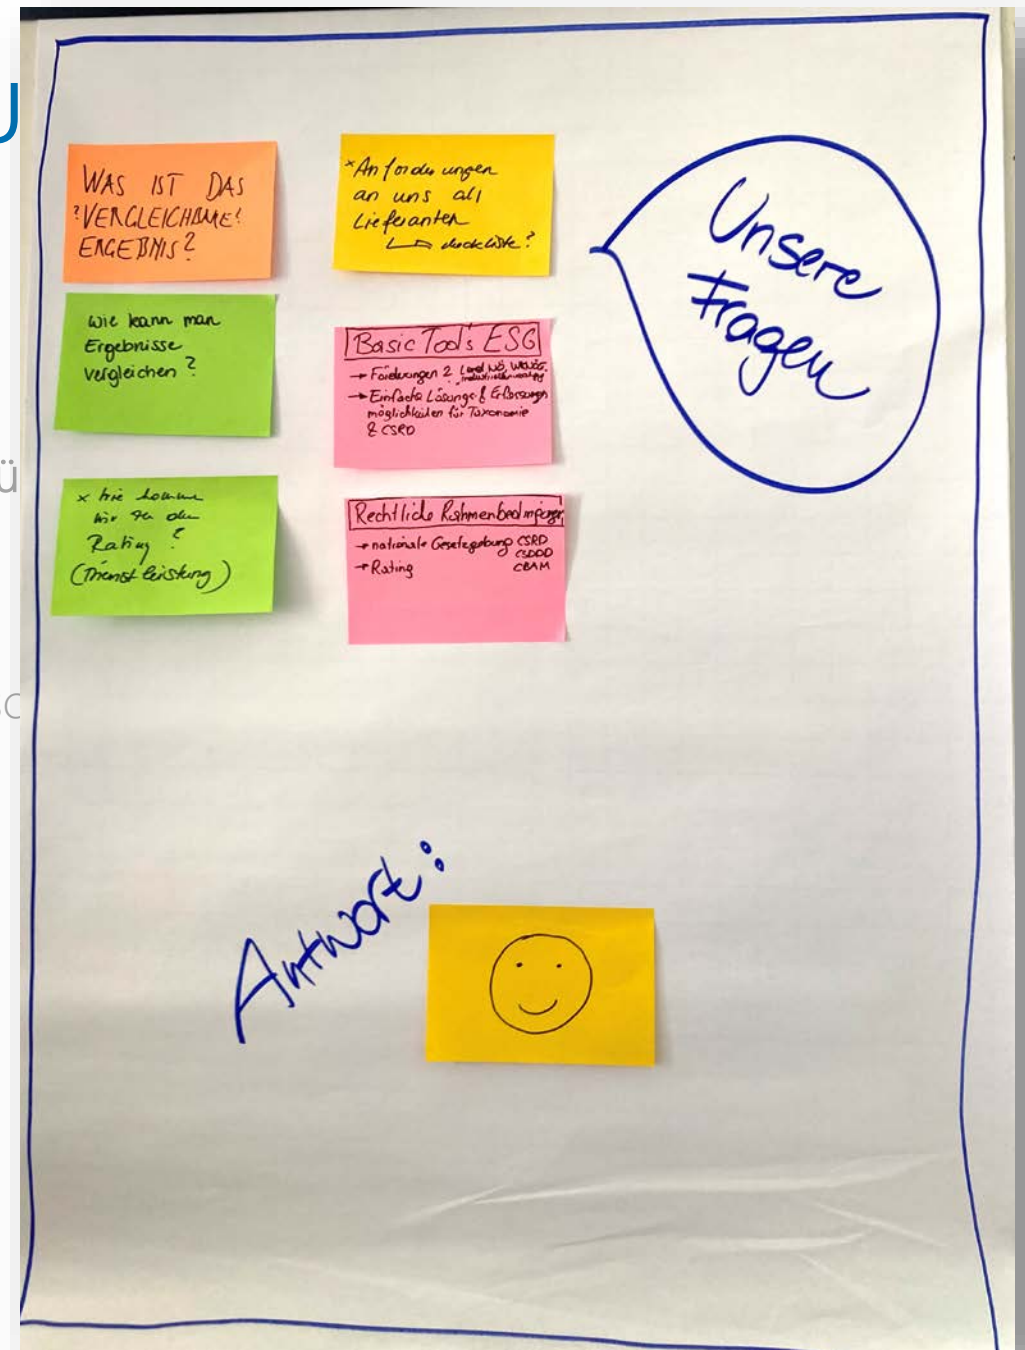 WAS IST DAS
?VERGLEICHBARE!
ERGEBNIS?
wie kann man
Ergebnisse
vergleichen?
x Wie kommen
wir zu den
Rating?
(Dienstleistung)
*Anforderungen
an uns als
Lieferanten
checkliste?
Basic Tool's ESG
→ Förderungen ? Land NÖ, WKNÖ,
→ Einfache Lösungs- & Erfassungs
möglichkeiten für Taxonomie
& CSRD
Rechtliche Rahmenbedingungen
→ nationale Gesetzgebung CSRD
CSDDD
→ Rating CBAM
Unsere
Fragen
Antwort: